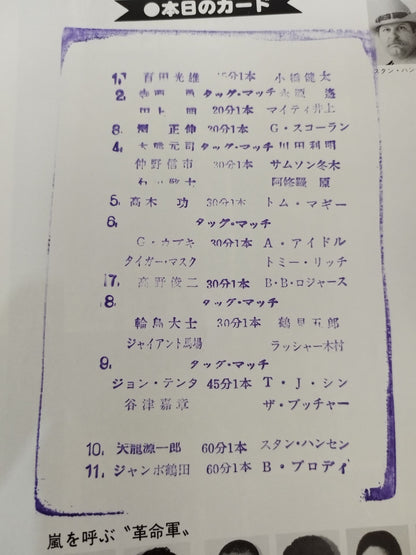 ●本日のカード
スタン・ハン
1. 百田光雄 15分1本 小橋健太
2. 寺西 勇 タッグ・マッチ 永源 遙
田上 明 20分1本 マイティ井上
3. 淵 正伸 20分1本 G・スコーラン
4. 大熊元司 タッグ・マッチ 川田利明
仲野信市 30分1本 サムソン冬木
阿修羅 原
5. 高木 功 30分1本 トム・マギー
6. タッグ・マッチ
G・カブキ 30分1本 A・アイドル
タイガー・マスク トミー・リッチ
7. 高野俊二 30分1本 B・B・ロジャース
8. タッグ・マッチ
輪島大士 30分1本 鶴見五郎
ジャイアント馬場 ラッシャー木村
9. タッグ・マッチ
ジョン・テンタ 45分1本 T・J・シン
谷津嘉章 ザ・ブッチャー
10. 天龍源一郎 60分1本 スタン・ハンセン
11. ジャンボ鶴田 60分1本 B・ブロディ
嵐を呼ぶ〝革命軍〟